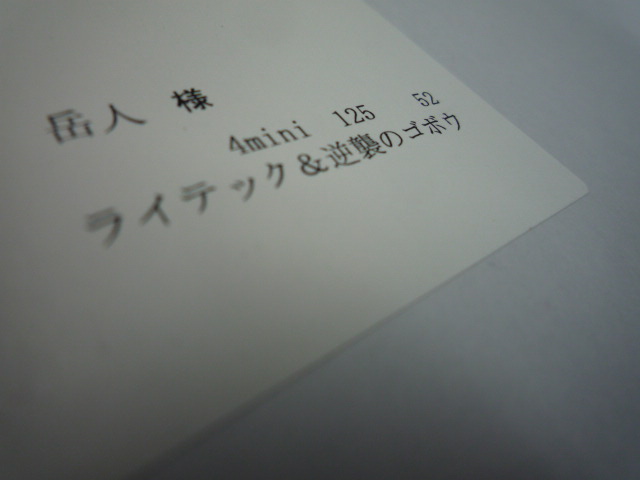 岳人 様
4mini 125 52
ライテック&逆襲のゴボウ